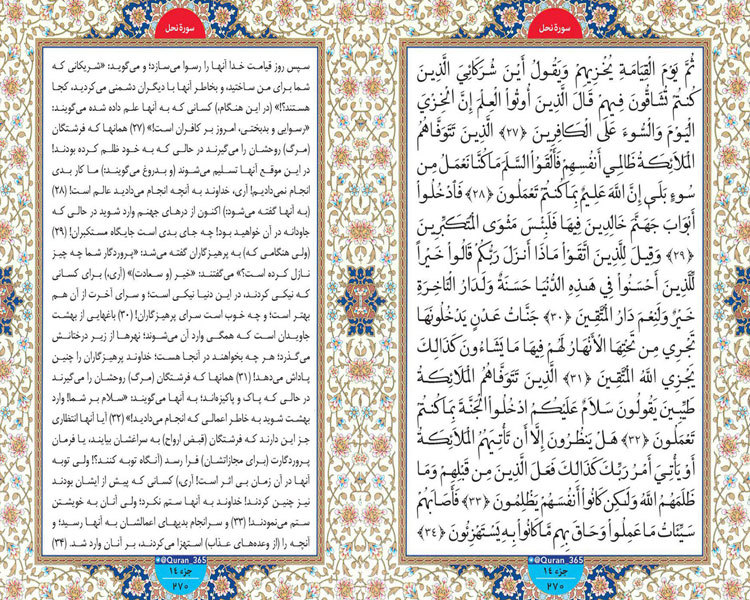 سورهٔ نحل
ثُمَّ يَوْمَ الْقِيَامَةِ يُخْزِيهِمْ وَيَقُولُ أَيْنَ شُرَكَائِيَ الَّذِينَ
كُنتُمْ تُشَاقُّونَ فِيهِمْ قَالَ الَّذِينَ أُوتُوا الْعِلْمَ إِنَّ الْخِزْيَ
الْيَوْمَ وَالسُّوءَ عَلَى الْكَافِرِينَ ﴿۲۷﴾ الَّذِينَ تَتَوَفَّاهُمُ
الْمَلَائِكَةُ ظَالِمِي أَنفُسِهِمْ فَأَلْقَوُا السَّلَمَ مَا كُنَّا نَعْمَلُ مِن
سُوءٍ بَلَى إِنَّ اللَّهَ عَلِيمٌ بِمَا كُنتُمْ تَعْمَلُونَ ﴿۲۸﴾ فَادْخُلُوا
أَبْوَابَ جَهَنَّمَ خَالِدِينَ فِيهَا فَلَبِئْسَ مَثْوَى الْمُتَكَبِّرِينَ
﴿۲۹﴾ وَقِيلَ لِلَّذِينَ اتَّقَوْا مَاذَا أَنزَلَ رَبُّكُمْ قَالُوا خَيْراً
لِّلَّذِينَ أَحْسَنُوا فِي هَذِهِ الدُّنْيَا حَسَنَةٌ وَلَدَارُ الْآخِرَةِ
خَيْرٌ وَلَنِعْمَ دَارُ الْمُتَّقِينَ ﴿۳۰﴾ جَنَّاتُ عَدْنٍ يَدْخُلُونَهَا
تَجْرِي مِن تَحْتِهَا الْأَنْهَارُ لَهُمْ فِيهَا مَا يَشَاءُونَ كَذَلِكَ
يَجْزِي اللَّهُ الْمُتَّقِينَ ﴿۳۱﴾ الَّذِينَ تَتَوَفَّاهُمُ الْمَلَائِكَةُ
طَيِّبِينَ يَقُولُونَ سَلَامٌ عَلَيْكُمُ ادْخُلُوا الْجَنَّةَ بِمَا كُنتُمْ
تَعْمَلُونَ ﴿۳۲﴾ هَلْ يَنظُرُونَ إِلَّا أَن تَأْتِيَهُمُ الْمَلَائِكَةُ
أَوْ يَأْتِيَ أَمْرُ رَبِّكَ كَذَلِكَ فَعَلَ الَّذِينَ مِن قَبْلِهِمْ وَمَا
ظَلَمَهُمُ اللَّهُ وَلَكِن كَانُوا أَنفُسَهُمْ يَظْلِمُونَ ﴿۳۳﴾ فَأَصَابَهُمْ
سَيِّئَاتُ مَا عَمِلُوا وَحَاقَ بِهِم مَّا كَانُوا بِهِ يَسْتَهْزِئُونَ ﴿۳۴﴾
@Quran_365
جزء ۱۴
۲۷۰
سورهٔ نحل
سپس روز قیامت خدا آنها را رسوا می‌سازد؛ و می‌گوید: «شریکانی که
شما برای من ساختید، و بخاطر آنها با دیگران دشمنی می‌کردید، کجا
هستند؟!» (در این هنگام،) کسانی که به آنها علم داده شده می‌گویند:
«رسوایی و بدبختی، امروز بر کافران است!» (۲۷) همانها که فرشتگان
(مرگ) روحشان را می‌گیرند در حالی که به خود ظلم کرده بودند!
در این موقع آنها تسلیم می‌شوند (و بدروغ می‌گویند:) ما کار بدی
انجام نمی‌دادیم! آری، خداوند به آنچه انجام می‌دادید عالم است! (۲۸)
(به آنها گفته می‌شود:) اکنون از درهای جهنم وارد شوید در حالی که
جاودانه در آن خواهید بود! چه جای بدی است جایگاه مستکبران! (۲۹)
(ولی هنگامی که) به پرهیزگاران گفته می‌شد: «پروردگار شما چه چیز
نازل کرده است؟» می‌گفتند: «خیر (و سعادت)» (آری،) برای کسانی
که نیکی کردند، در این دنیا نیکی است؛ و سرای آخرت از آن هم
بهتر است؛ و چه خوب است سرای پرهیزگاران! (۳۰) باغهایی از بهشت
جاویدان است که همگی وارد آن می‌شوند؛ نهرها از زیر درختانش
می‌گذرد؛ هر چه بخواهند در آنجا هست؛ خداوند پرهیزگاران را چنین
پاداش می‌دهد! (۳۱) همانها که فرشتگان (مرگ) روحشان را می‌گیرند
در حالی که پاک و پاکیزه‌اند؛ به آنها می‌گویند: «سلام بر شما! وارد
بهشت شوید به خاطر اعمالی که انجام می‌دادید!» (۳۲) آیا آنها انتظاری
جز این دارند که فرشتگان (قبض ارواح) به سراغشان بیایند، یا فرمان
پروردگارت (برای مجازاتشان) فرا رسد (آنگاه توبه کنند؟! ولی توبه
آنها در آن زمان بی اثر است!) آری) کسانی که پیش از ایشان بودند
نیز چنین کردند! خداوند به آنها ستم نکرد؛ ولی آنان به خویشتن
ستم می‌نمودند! (۳۳) و سرانجام بدیهای اعمالشان به آنها رسید؛ و
آنچه را (از وعده‌های عذاب) استهزا می‌کردند، بر آنان وارد شد. (۳۴)
@Quran_365
جزء ۱۴
۲۷۰